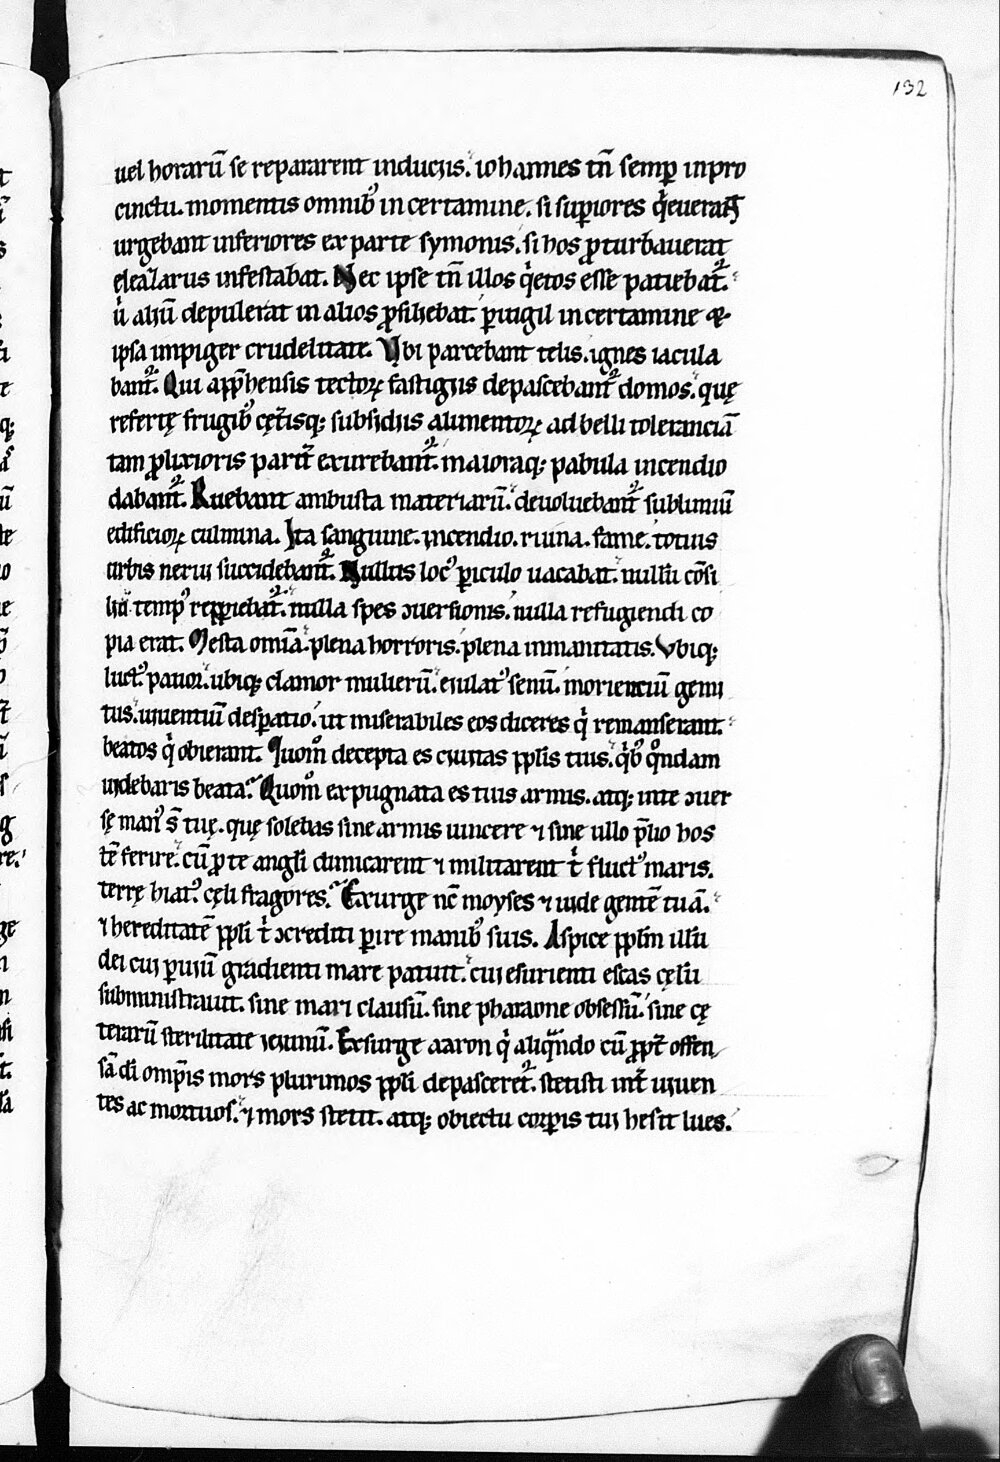 132
uel horarū se repararent inducijs. iohannes tn̄ semꝑ in pro
cinctu. momentis omnibꝰ in certamine. si superiores qͥeuerant
urgebant inferiores ex parte symonis. si hos ꝓturbauerat
eleazarus infestabat. Nec ipse tn̄ illos qͥetos esse patiebat᷑.
ut aliū depulerat in alios ꝓsiliebat. ꝑuigil in certamine ⁊
ipsa impiger crudelitate. Vbi parcebant telis. ignes iacula
bant᷑. Qui app̄hensis tectoꝝ fastigijs depascebant᷑ domos. quę
refertę frugibꝰ cęt̄isq; subsidijs alimentoꝝ ad belli toleranciā
tam ꝓlixioris parit̄ exurebant᷑. maioraq; pabula incendio
dabant᷑. Ruebant ambusta materiarū. deuoluebant᷑ sublimiū
edificioꝝ culmina. Ita sanguine. incendio. ruina. fame. totius
urbis nerui succidebant᷑. Nullus locꝰ ꝑiculo uacabat. nullū cōsi
liū tempꝰ reꝑiebat᷑. nulla spes ↄuersionis. nulla refugiendi co
pia erat. Mesta omīa. plena horroris. plena inmanitatis. Vbiq;
luctꝰ. pauor. ubiq; clamor mulierū. eiulatꝰ senū. morienciū gemi
tus. uiuentiū desꝑatio. ut miserabiles eos diceres qͥ remanserant.
beatos qͥ obierant. Quom̊ decepta es ciuitas pp̄lis tuis. qͥbꝰ qͦndam
uidebaris beata. Quom̊ expugnata es tuis armis. atq; in te ↄuer
sę manꝰ s̄ tuę. quę solebas sine armis uincere ⁊ sine ullo p̄lio hos
tē ferire. cū ꝓ te angli dimicarent ⁊ militarent tͥ fluctꝰ maris.
terrę hiatꝰ. cęli fragores. Exurge nc̄ moyses ⁊ uide gentē tuā.
⁊ hereditatē pp̄li tͥ ↄcrediti ꝑire manibꝰ suis. Aspice pp̄lm illū
dei cui ꝑuiū gradienti mare patuit. cui esurienti escas cęlū
subministrauit. sine mari clausū. sine pharaone obsessū. sine cę
terarū sterilitate ieiunū. Exsurge aaron qͥ aliqͣndo cū ꝓpt̄ offen
sā dī omp̄is mors plurimos pp̄li depasceret᷑. stetisti int̄ uiuen
tes ac mortuos. ⁊ mors stetit. atq; obiectu corꝑis tui hesit lues.